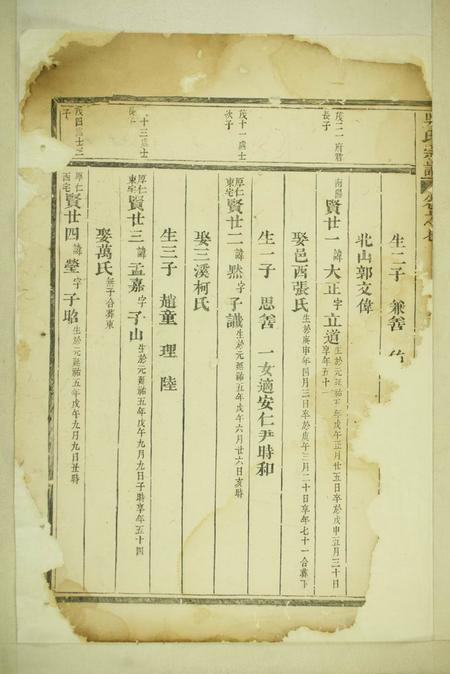 氏宗譜
生二子 兼善
北山郭文偉
茂二一府君
長子
南陽
賢廿一 諱大正字立道 生於元延祐五年戊午正月廿五日卒於戊申五月三十日
享年五十一
娶邑西張氏 生於庚申年四月三日卒於庚午三月二十日享年七十一合葬
生一子 思善 一女適安仁尹時和
茂十一處士
次子
厚仁
東宅
賢廿二 諱默字子識 生於元延祐五年戊午六月廿六日亥時
娶三溪柯氏
生三子 趙童 理 陸
十三處士
厚仁
東宅
賢廿三 諱孟嘉字子山 生於元延祐五年戊午九月九日子時享年五十四
娶萬氏 無子合葬東
茂四處士三
子
厚仁
西宅
賢廿四 諱瑩字子昭 生於元延祐五年戊午九月九日丑時